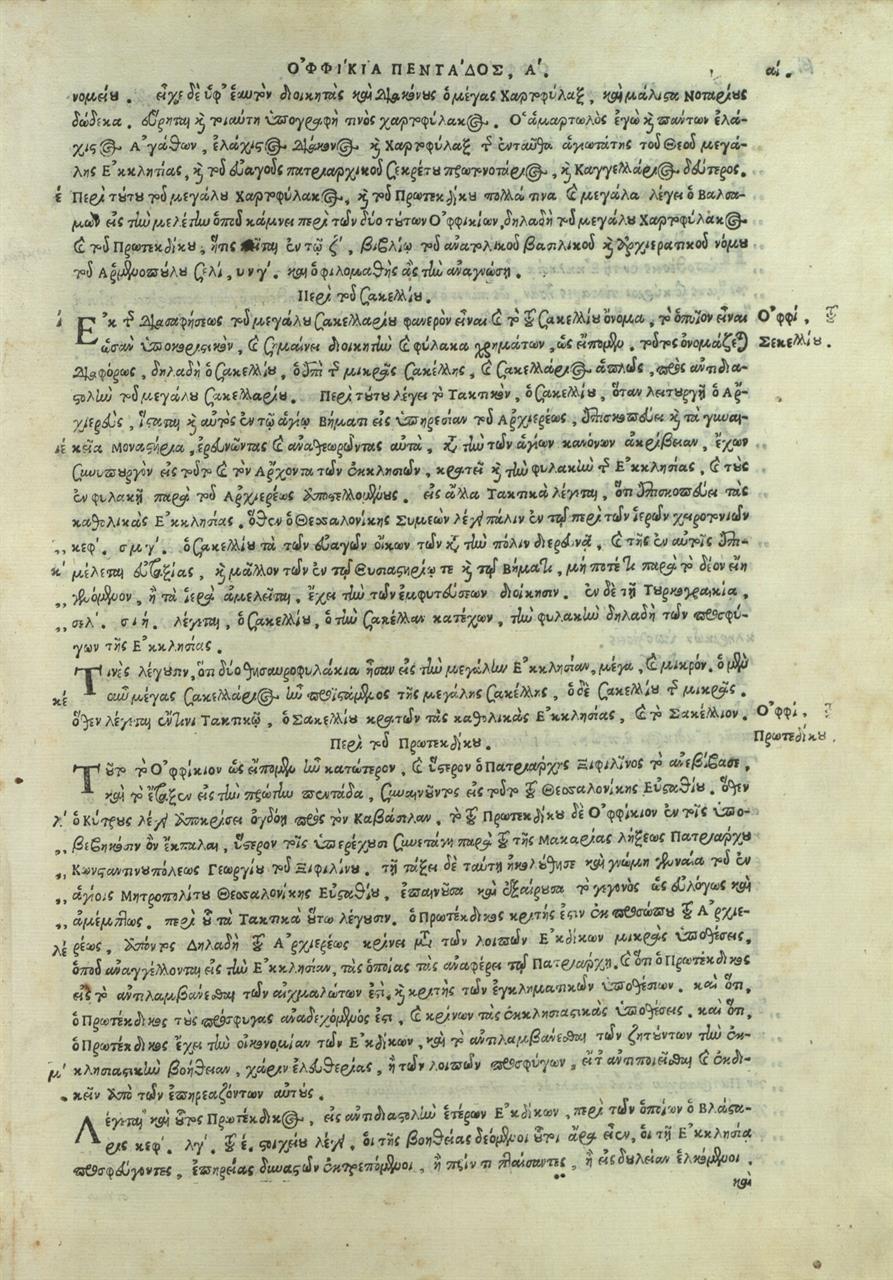 ΟΦΦΙΚΙΑ ΠΕΝΤΑΔΟΣ, Α.
νομείου. εἶχε δὲ ὑφ' ἑαυτὸν διοικητὰς καὶ Διακόνους ὁ μέγας Χαρτοφύλαξ, καὶ μάλιστα Νοταρίους
δώδεκα. εὕρηται καὶ τοιαύτη ὑπογραφὴ τινὸς χαρτοφύλακος. Ὁ ἁμαρτωλὸς ἐγὼ καὶ πάντων ἐλά-
χιστος Ἀγάθων, ἐλάχιστος Διάκονος καὶ Χαρτοφύλαξ τῆς ἐνταῦθα ἁγιωτάτης τοῦ Θεοῦ μεγά-
λης Ἐκκλησίας, καὶ τοῦ εὐαγοῦς πατριαρχικοῦ σεκρέτου πρωτονοτάριος, καὶ Καγγελλάριος δεύτερος.
έ Περὶ τούτου τοῦ μεγάλου Χαρτοφύλακος, καὶ τοῦ Πρωτεκδίκου πολλά τινα καὶ μεγάλα λέγει ὁ Βαλσα-
μὼν εἰς τὴν μελέτην ὁποῦ κάμνει περὶ τῶν δύο τούτων Ὀφφικίων, δηλαδὴ τοῦ μεγάλου Χαρτοφύλακος
καὶ τοῦ Πρωτεκδίκου, ἥτις κεῖται ἐν τῷ ζ', βιβλίῳ τοῦ ἀνατολικοῦ βασιλικοῦ καὶ Ἀρχιερατικοῦ νόμου
τοῦ Ἁρμενοπούλου σελί, υνγ'. καὶ ὁ φιλομαθὴς ἂς τὴν ἀναγνώσῃ.
Περὶ τοῦ Σακελλίου.
Ἐκ τῆς Διασαφήσεως τοῦ μεγάλου Σακελλαρίου φανερὸν εἶναι καὶ τὸ τοῦ Σακελλίου ὄνομα, τὸ ὁποῖον εἶναι
Ὀφφί, τοῦ
ὡσὰν ὑποκοριστικὸν, καὶ σημαίνει διοικητὴν καὶ φύλακα χρημάτων, ὡς εἴπομεν. τοῦτος ὀνομάζεται
Σεκελλίου.
Διαφόρως, δηλαδὴ ὁ Σακελλίου, ὁ ἐπὶ τῆς μικρᾶς Σακέλλης, καὶ Σακελλάριος ἁπλῶς, πρὸς ἀντιδια-
στολὴν τοῦ μεγάλου Σακελλαρίου. Περὶ τούτου λέγει τὸ Τακτικὸν, ὁ Σακελλίου, ὅταν λειτουργῇ ὁ Ἀρ-
χιερεὺς, ἵσταται καὶ αὐτὸς ἐν τῷ ἁγίῳ Βήματι εἰς ὑπηρεσίαν τοῦ Ἀρχιερέως, ἐπισκοπεύει καὶ τὰ γυναι-
κεῖα Μοναστήρια, ἐρευνῶντας καὶ ἀναθεωρῶντας αὐτὰ, κατὰ τὴν τῶν ἁγίων κανόνων ἀκρίβειαν, ἔχων
συνυπουργὸν εἰς τοῦτο καὶ τὸν Ἄρχοντα τῶν ἐκκλησιῶν, κρατεῖ καὶ τὴν φυλακὴν τῆς Ἐκκλησίας, καὶ τοὺς
ἐν φυλακῇ παρὰ τοῦ Ἀρχιερέως ἀποστελλομένους. εἰς ἄλλα Τακτικὰ λέγεται, ὅτι ἐπισκοπεύει τὰς
καθολικὰς Ἐκκλησίας. ὅθεν ὁ Θεσσαλονίκης Συμεὼν λέγει πάλιν ἐν τῷ περὶ τῶν ἱερῶν χειροτονιῶν
,, κεφ. σμγ'. ὁ Σακελλίου τὰ τῶν εὐαγῶν οἴκων τῶν κατὰ τὴν πόλιν διερευνᾷ, καὶ τῆς ἐν αὐτοῖς ἐπι-
κ' μέλεται εὐταξίας, καὶ μᾶλλον τῶν ἐν τῷ Θυσιαστηρίῳ τε καὶ τῷ Βήματι, μή ποτέ τι παρὰ τὸ δέον εἴη
,, γενόμενον, ἢ τὰ ἱερὰ ἀμελεῖται, ἔχει τὴν τῶν ἐμφυτεύσεων διοίκησιν. ἐν δὲ τῇ Τουρκογραικίᾳ,
,, σελ'. σιή. λέγεται, ὁ Σακελλίου, ὁ τὴν Σακέλλαν κατέχων, τὴν φυλακὴν δηλαδὴ τῶν προσφύ-
γων τῆς Ἐκκλησίας.
Τινὲς λέγουσιν, ὅτι δύο θησαυροφυλάκια ἦσαν εἰς τὴν μεγάλην Ἐκκλησίαν, μέγα, καὶ μικρόν. ὁ μὲν
κέ οὖν μέγας Σακελλάριος ἦν προϊστάμενος τῆς μεγάλης Σακέλλης, ὁ δὲ Σακελλίου τῆς μικρᾶς.
ὅθεν λέγεται ἔν τινι Τακτικῷ, ὁ Σακελλίου κρατῶν τὰς καθολικὰς Ἐκκλησίας, καὶ τὸ Σακέλλιον.
Ὀφφί, τοῦ
Περὶ τοῦ Πρωτεκδίκου.
Πρωτεδίκου.
Τοῦτο τὸ Ὀφφίκιον ὡς εἴπομεν ἦν κατώτερον, καὶ ὕστερον ὁ Πατριάρχης Ξιφιλῖνος τὸ ἀνεβίβασε,
καὶ τὸ ἔταξεν εἰς τὴν πρώτην πεντάδα, συναινοῦντος εἰς τοῦτο τοῦ Θεσσαλονίκης Εὐσταθίου. ὅθεν
λ' ὁ Κύτρους λέγει ἀποκρίσει ὀγδόῃ πρὸς τὸν Καβάσιλαν, τὸ τοῦ Πρωτεκδίκου δὲ Ὀφφίκιον ἐν τοῖς ὑπο-
,, βεβηκόσιν ὂν ἔκπαλαι, ὕστερον τοῖς ὑπερέχουσι συνετάγη παρὰ τοῦ τῆς Μακαρίας λήξεως Πατριάρχου
,, Κωνσταντινουπόλεως Γεωργίου τοῦ Ξιφιλίνου. τῇ τάξει δὲ ταύτῃ ἠκολούθησε καὶ γνώμη γενναία τοῦ ἐν
,, ἁγίοις Μητροπολίτου Θεσσαλονίκης Εὐσταθίου, ἐπαινοῦσα καὶ ἐξαίρουσα τὸ γεγονὸς ὡς εὐλόγως καὶ
,, ἀμέμπτως. περὶ οὗ τὰ Τακτικὰ οὕτω λέγουσιν. ὁ Πρωτέκδικος κριτής ἐστιν ἐκ προσώπου τοῦ Ἀρχιε-
λέ ρέως, ἀπόντος Δηλαδὴ τοῦ Ἀρχιερέως κρίνει μετὰ τῶν λοιπῶν Ἐκδίκων μικρὰς ὑποθέσεις,
ὁποῦ ἀναγγέλλονται εἰς τὴν Ἐκκλησίαν, τὰς ὁποίας τὰς ἀναφέρει τῷ Πατριάρχῃ. καὶ ὅτι ὁ Πρωτέκδικος
εἰς τὸ ἀντιλαμβάνεσθαι τῶν αἰχμαλώτων ἐστὶ, καὶ κριτὴς τῶν ἐγκληματικῶν ὑποθέσεων. καὶ ὅτι,
ὁ Πρωτέκδικος τοὺς πρόσφυγας ἀναδεχόμενός ἐστι, καὶ κρίνων τὰς ἐκκλησιαστικὰς ὑποθέσεις. καὶ ὅτι,
ὁ Πρωτέκδικος ἔχει τὴν οἰκονομίαν τῶν Ἐκδίκων, καὶ τὸ ἀντιλαμβάνεσθαι τῶν ζητούντων τὴν ἐκ-
μ' κλησιαστικὴν βοήθειαν, χάριν ἐλευθερίας, ἢ τῶν λοιπῶν προσφύγων, εἶτ' ἀντιποιεῖσθαι καὶ ἐκδι-
κεῖν ἀπὸ τῶν ἐπηρεαζόντων αὐτούς.
Λέγεται καὶ οὗτος Πρωτέκδικος, εἰς ἀντιδιαστολὴν ἑτέρων Ἐκδίκων, περὶ τῶν ὁποίων ὁ Βλάστα-
ρις κεφ. λγ'. τοῦ ε. στοιχείου λέγει. οἱ τῆς βοηθείας δεόμενοι οὗτοι ἄρα εἶεν, οἱ τῇ Ἐκκλησίᾳ
προσφεύγοντες, ἐπηρείας δυναστῶν ἐκτρεπόμενοι, ἢ πρίν τι πταίσαντες, ἢ εἰς δουλείαν ἑλκόμενοι.
καὶ